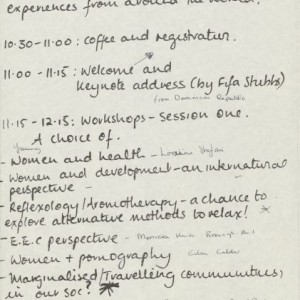 experiences from around the world.
10.30-11.00: Coffee and registration.
11.00-11.15: Welcome and
Keynote address (by Fifa Stubbs)
from Dominican Republic
11.15-12.15: Workshops - Session One.
A choice of.
- Women and health -
- Women and development - an international
perspective -
- Reflexology/Aromotherapy - a chance to
explore alternative methods to relax!
- E.E.C perspective -
- Women + pornography
- Marginalised/Travelling communities,
in our soc?